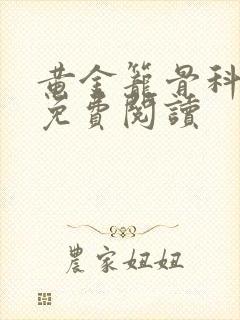 黄金籠骨科
免費閱讀
農家妞妞